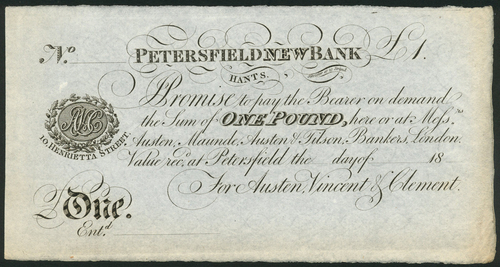 No. PETERSFIELD NEW BANK £1.
HANTS.
Promise to pay the Bearer on demand
the Sum of ONE POUND, here or at Messrs.
Austen, Maunde, Austen & Tilson, Bankers, London.
Value recd. at Petersfield the day of 18
For Austen, Vincent & Clement.
10, HENRIETTA STREET.
£ One.
Entd.